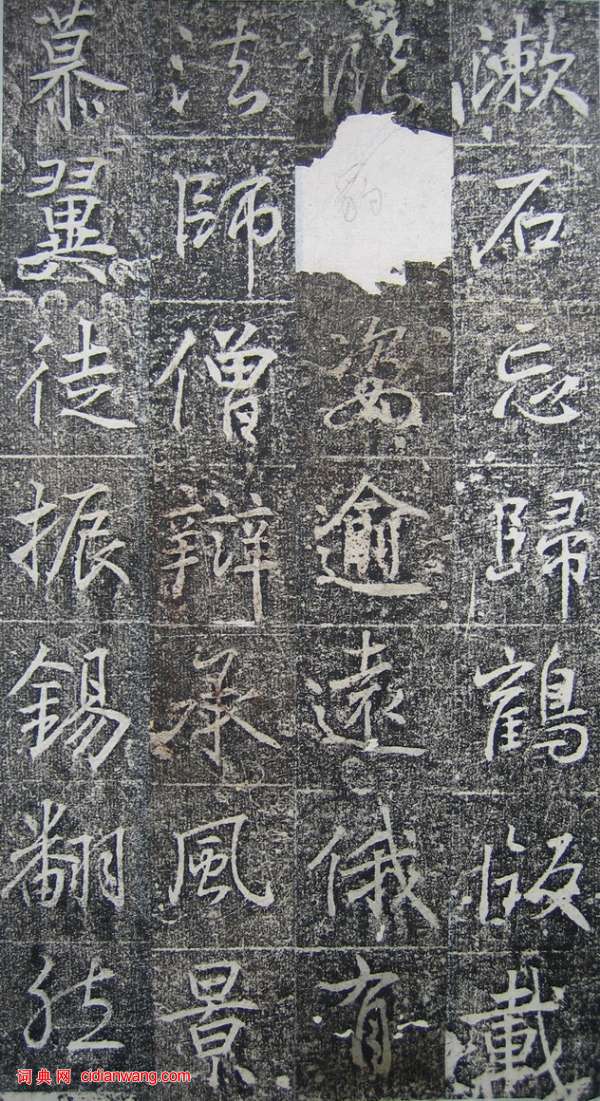 漱石忘歸鶴飯載
姿逾遠俄有
法師僧辯承風景
慕翼徒振錫翻然
词典网 cidianwang.com